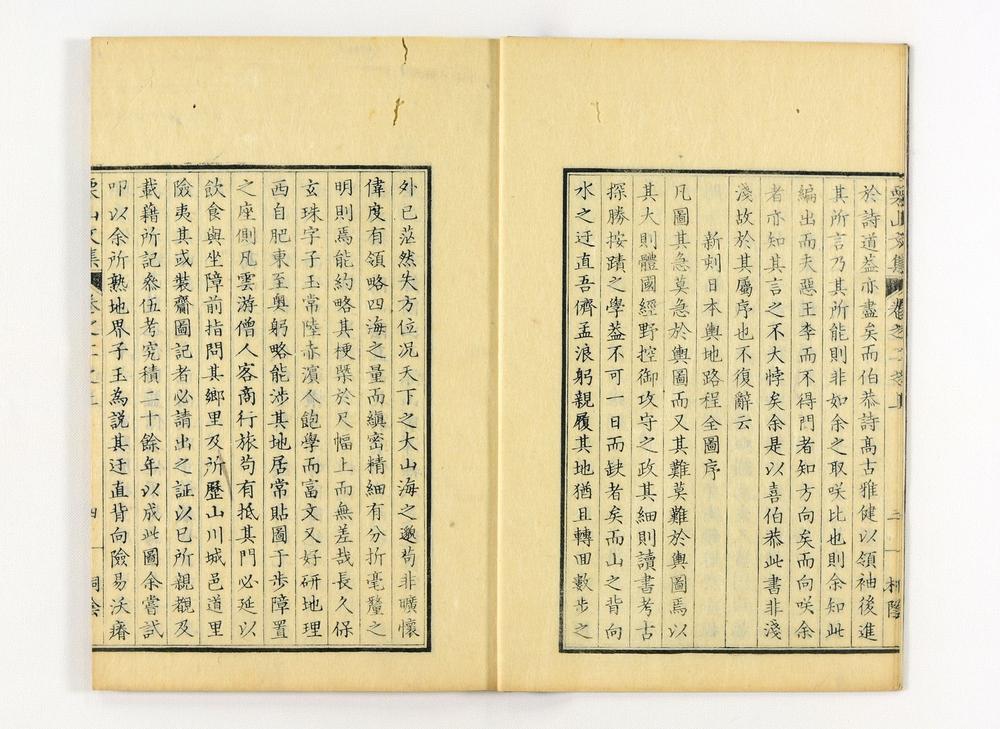 於詩道葢亦盡矣而伯恭詩髙古雅健以領袖後進
其所言乃其所能則非如余之取咲比也則余知此
編出而夫惡王李而不得門者知方向矣而向咲余
者亦知其言之不大悖矣余是以喜伯恭此書非淺
淺故於其屬序也不復辭云
新刻日本輿地路程全圖序
凡圖其急莫急於輿圖而又其難莫難於輿圖焉以
其大則體國經野控御攻守之政其細則讀書考古
探勝按蹟之學葢不可一日而缺者矣而山之背向
水之迂直吾儕孟浪躬親履其地猶且轉回數步之
外已茫然失方位況天下之大山海之邈苟非曠懷
偉度有領略四海之量而縝密精細有分折毫釐之
明則焉能約略其梗槩於尺幅上而無差哉長久保
玄珠字子玉常陸赤濱人飽學而富文又好研地理
西自肥東至奧躬略能涉其地居常貼圖于步障置
之座側凡雲游僧人客商行旅苟有抵其門必延以
飲食與坐障前指問其鄉里及所歷山川城邑道里
險夷其或裝齎圖記者必請出之証以己所親觀及
載籍所記叅伍考究積二十餘年以成此圖余嘗試
叩以余所熟地界子玉為説其迂直背向險易沃瘠
栗山文集 卷之二之上 四